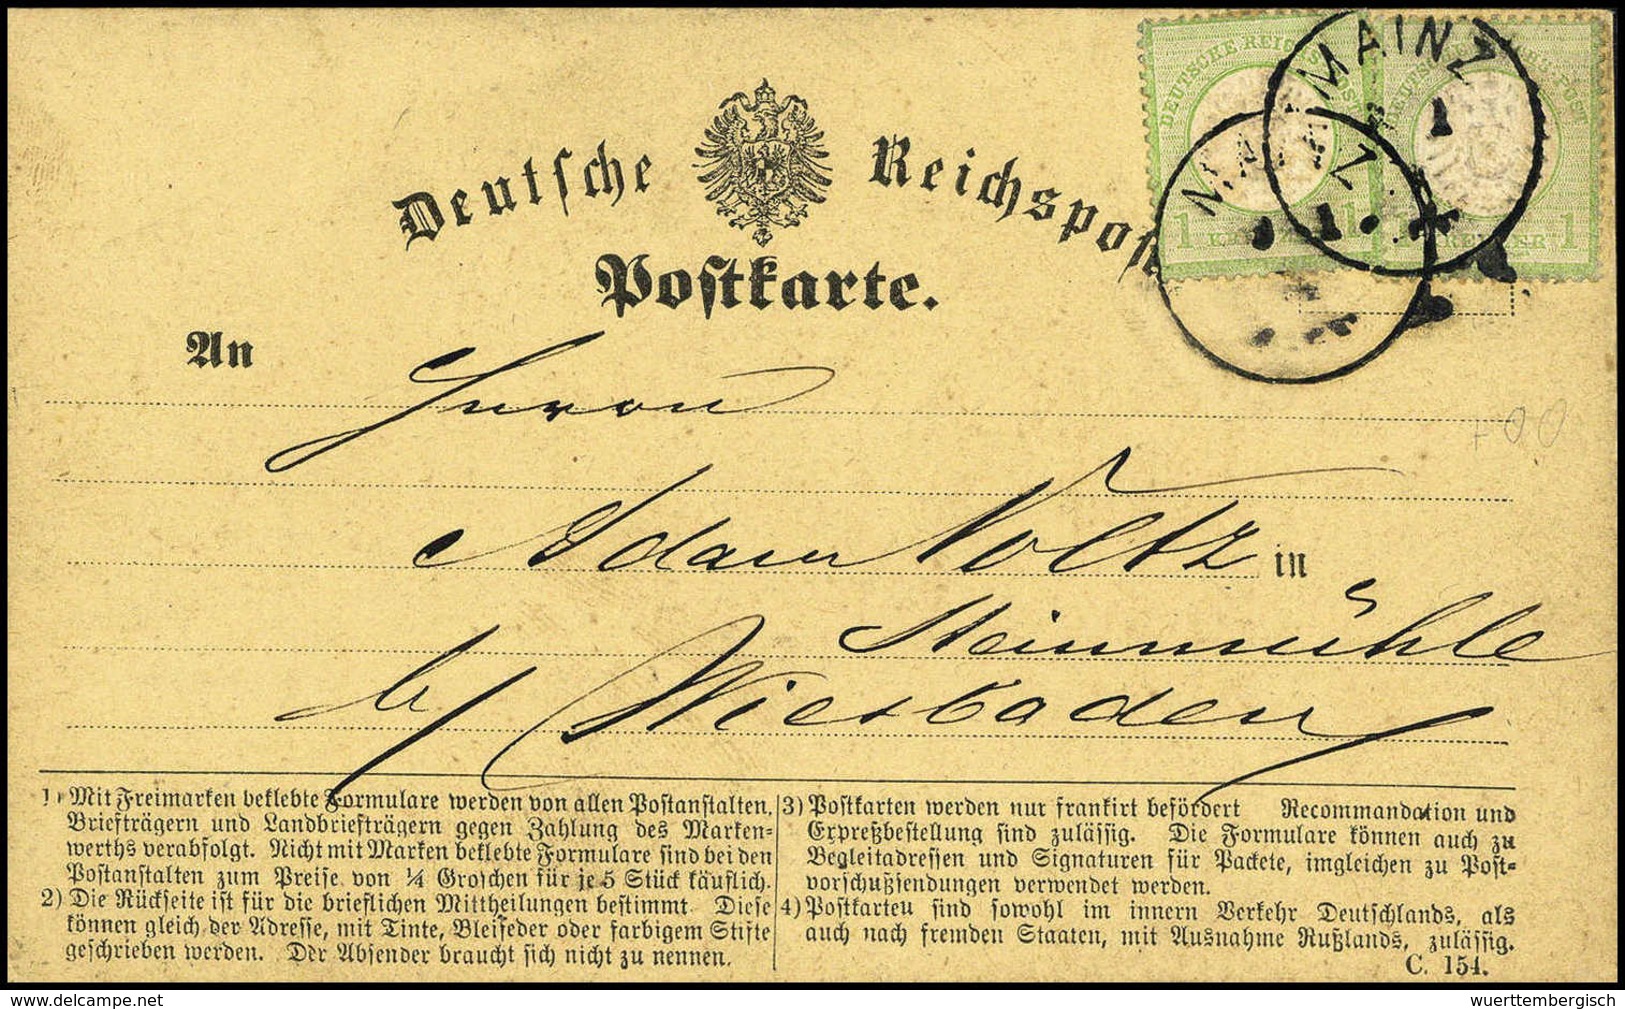 Deutsche Reichspost
Postkarte.
DEUTSCHE REICHS POST
1 KREUZER 1
MAINZ
MAINZ
An
Herrn
Adam Voltz in
Steinmühle
b/ Wiesbaden
1) Mit Freimarken beklebte Formulare werden von allen Postanstalten,
Briefträgern und Landbriefträgern gegen Zahlung des Marken-
werths verabfolgt. Nicht mit Marken beklebte Formulare sind bei den
Postanstalten zum Preise von ¼ Groschen für je 5 Stück käuflich.
2) Die Rückseite ist für die brieflichen Mittheilungen bestimmt. Diese
können gleich der Adresse, mit Tinte, Bleifeder oder farbigem Stifte
geschrieben werden. Der Absender braucht sich nicht zu nennen.
3) Postkarten werden nur frankirt befördert Recommandation und
Expreßbestellung sind zulässig. Die Formulare können auch zu
Begleitadressen und Signaturen für Packete, imgleichen zu Post-
vorschußsendungen verwendet werden.
4) Postkarten sind sowohl im innern Verkehr Deutschlands, als
auch nach fremden Staaten, mit Ausnahme Rußlands, zulässig.
C. 154.
www.delcampe.net
wuerttembergisch